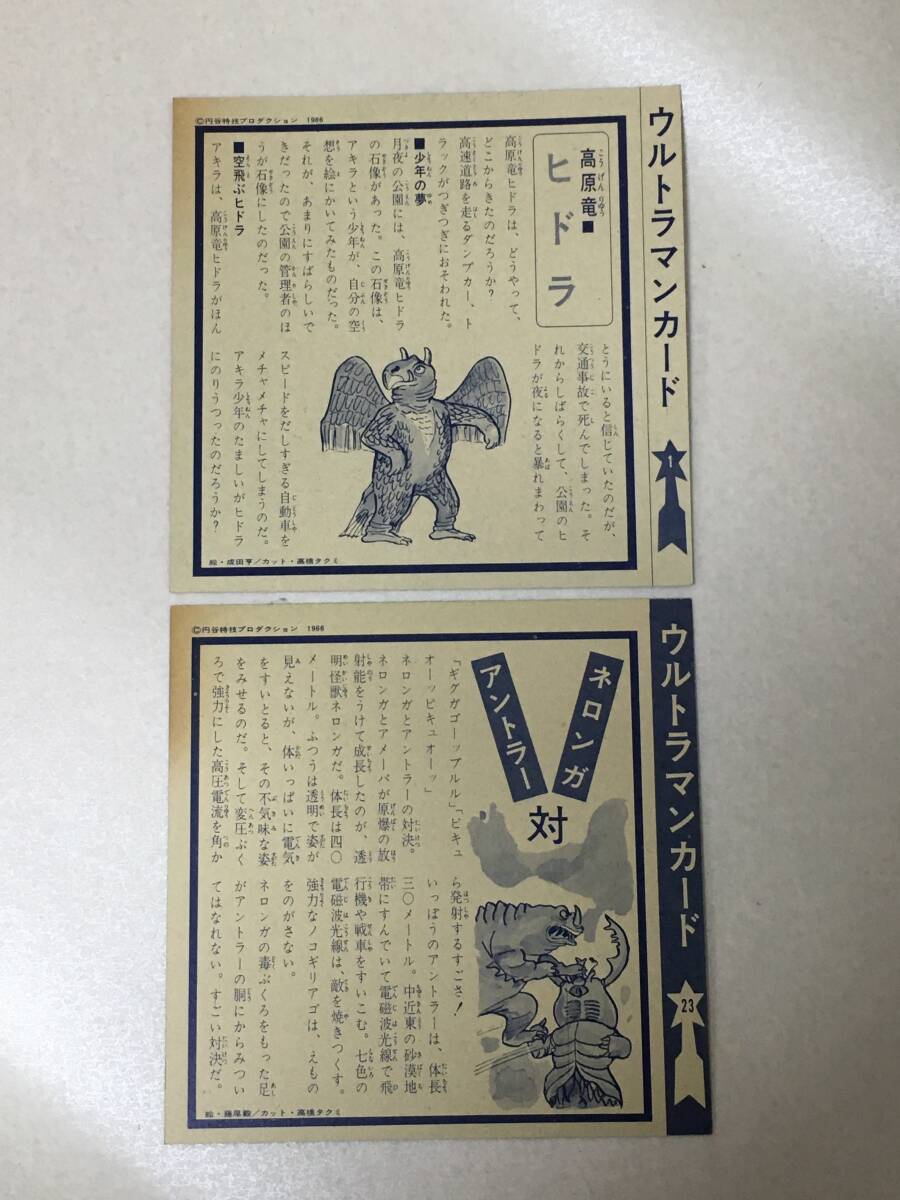 ウルトラマンカード
1
©円谷特技プロダクション 1966
高原竜■
こうげんりゅう
ヒドラ
高原竜ヒドラは、どうやって、
どこからきたのだろうか?
高速道路を走るダンプカー、ト
ラックがつぎつぎにおそわれた。
■少年の夢
月夜の公園には、高原竜ヒドラ
の石像があった。この石像は、
アキラという少年が、自分の空
想を絵にかいてみたものだった。
それが、あまりにすばらしいで
きだったので公園の管理者のほ
うが石像にしたのだった。
■空飛ぶヒドラ
アキラは、高原竜ヒドラがほん
とうにいると信じていたのだが、
交通事故で死んでしまった。そ
れからしばらくして、公園のヒ
ドラが夜になると暴れまわって
スピードをだしすぎる自動車を
メチャメチャにしてしまうのだ。
アキラ少年のたましいがヒドラ
にのりうつったのだろうか?
絵・成田亨/カット・高橋タクミ
ウルトラマンカード
23
©円谷特技プロダクション 1966
ネロンガ
対
アントラー
「ギグガゴーップルル」「ピキュ
オーッピキュオーッ」
ネロンガとアントラーの対決。
ネロンガとアメーバが原爆の放
射能をうけて成長したのが、透
明怪獣ネロンガだ。体長は四〇
メートル。ふつうは透明で姿が
見えないが、体いっぱいに電気
をすいとると、その不気味な姿
をみせるのだ。そして変圧ぶく
ろで強力にした高圧電流を角か
ら発射するすごさ!
いっぽうのアントラーは、体長
三〇メートル。中近東の砂漠地
帯にすんでいて電磁波光線で飛
行機や戦車をすいこむ。七色の
電磁波光線は、敵を焼きつくす。
強力なノコギリアゴは、えもの
をのがさない。
ネロンガの毒ぶくろをもった足
がアントラーの胴にからみつい
てはなれない。すごい対決だ。
絵・藤尾毅/カット・高橋タクミ